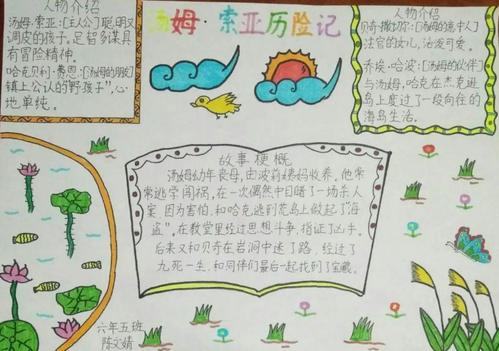 汤姆·索亚历险记
人物介绍
汤姆·索亚:[主人公]聪明又
调皮的孩子。足智多谋具
有冒险精神。
哈克贝利·费恩:[汤姆的朋友]
镇上公认的“野孩子”,心
地单纯。
人物介绍
贝奇·撒切尔:[汤姆的意中人]
法官的女儿,活泼可爱。
乔埃·哈波:[汤姆的伙伴]
与汤姆,哈克在杰克逊
岛上度过了一段向往的
海岛生活。
故事梗概
汤姆幼年丧母,由波莉姨妈收养,他常
常逃学闯祸,在一次偶然中目睹了一场杀人
案,因为害怕,和哈克逃到荒岛上做起了“海
盗”。在教堂里经过思想斗争,指证了凶手。
后来又和贝奇在岩洞中迷了路,经过了
九死一生,和同伴们最后一起找到了宝藏。
六年五班
陈文婧